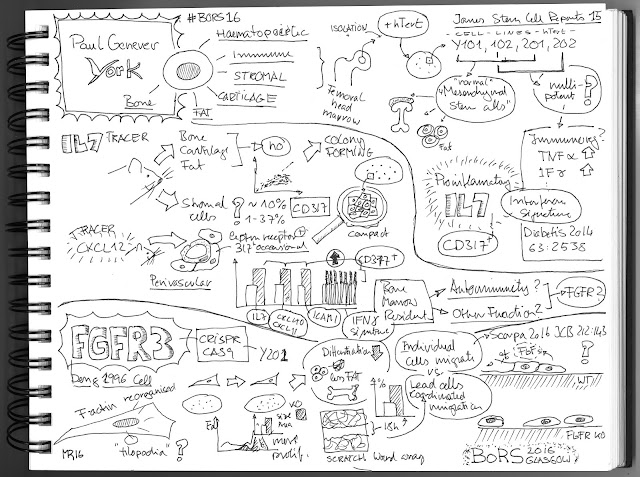 Paul Genever
York
#BORS16
Haematopoietic
Immune
STROMAL
CARTILAGE
Bone
FAT
ISOLATION
+hTert
Femoral
head
marrow
James Stem Cell Reports 15
CELL-LINES-hTert-
Y101, 102, 201, 202
"normal"
"Mesenchymal
Stem cells"
Fat
multi-
potent
?
Immunity?
TNFα
IFγ
Interferon
Signature
Diabetis 2014
63:2538
Proinflamatory
IL7
CD317+
IL7 TRACER
Bone
Cartilage
Fat
no
COLONY
FORMING
Stromal
cells
?
~10%
1-37%
CD317
Compact
TRACER
CXCL12
Perivascular
Leptin receptor +
317+ occasional
CD317+
IL7
CXCL10
CXCL11
ICAM1
IFNγ
Signature
Bone
Marrow
Resident
Autoimmunity?
Other Function?
FGFR2
FGFR3
CRISPR
CAS9
Y201
Deng 1996 Cell
F-actin reorganised
"filopodia"
MR16
Fat
KO
more
prolif.
Differentiation
less Fat
SCRATCH Wound assay
%
18h?
Individual
Cells migrate
vs.
Lead cells
coordinated
migration
Scarpa 2016 JCB 212:143
WT
FGFR KO
BORS 2016
GLASGOW